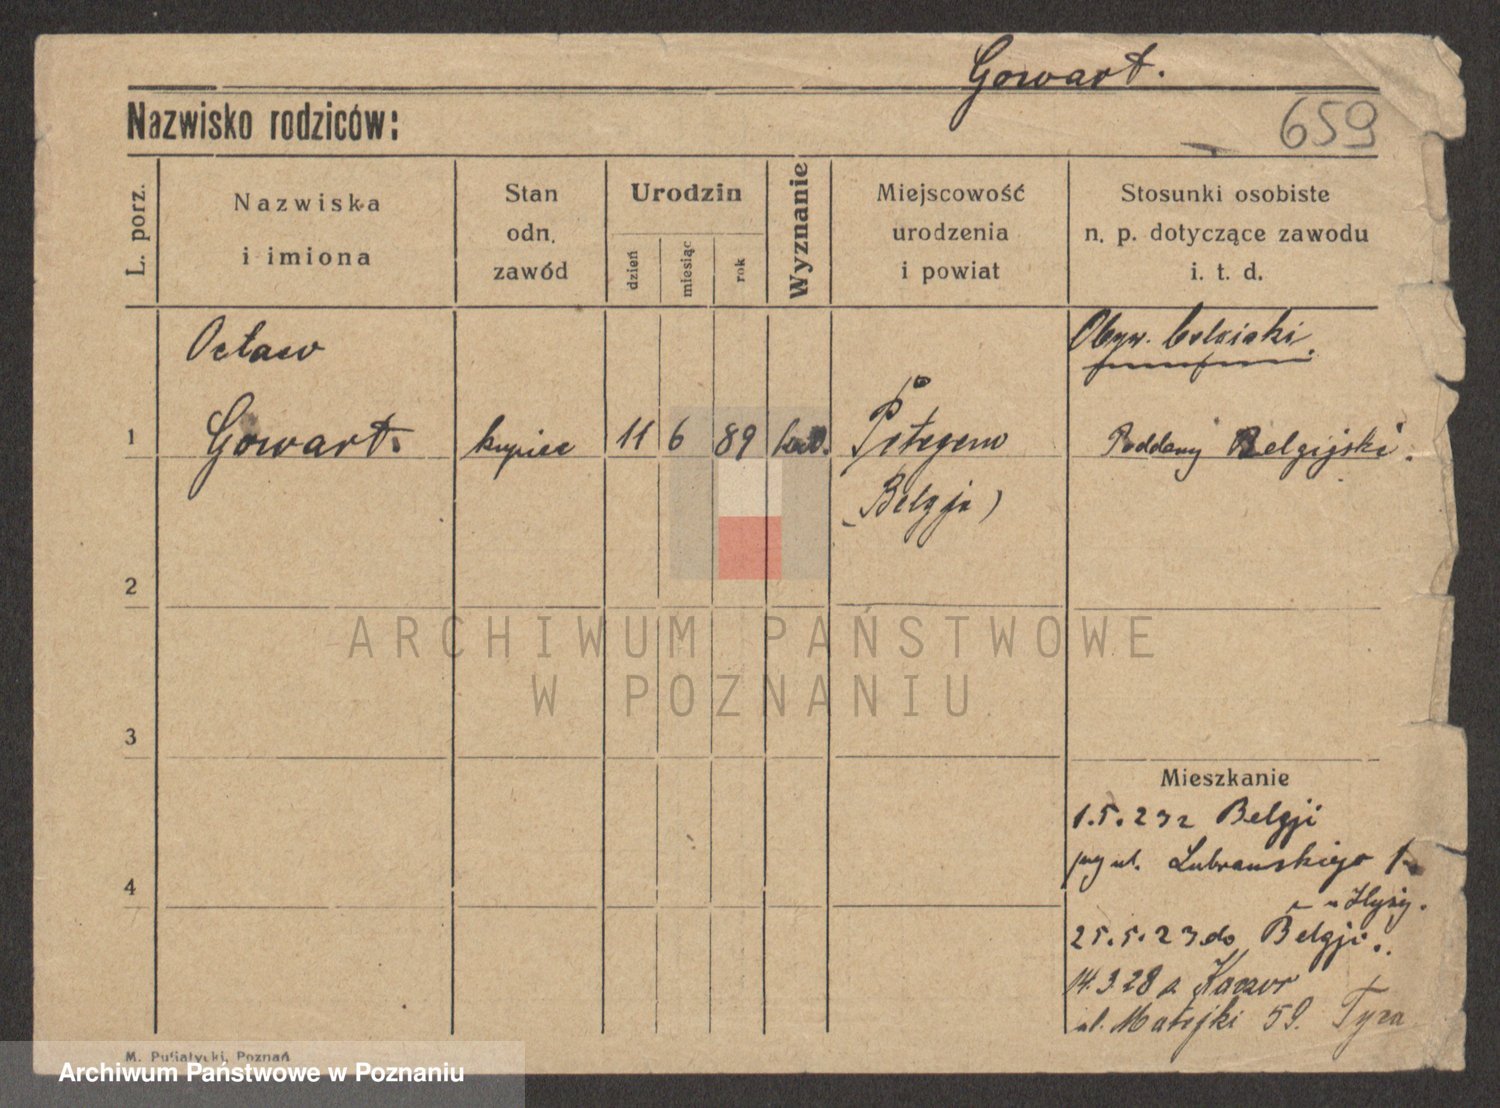 Gowart.
659
Nazwisko rodziców:
L. porz.
Nazwiska
i imiona
Stan
odn.
zawód
Urodzin
dzień
miesiąc
rok
Wyznanie
Miejscowość
urodzenia
i powiat
Stosunki osobiste
n. p. dotyczące zawodu
i. t. d.
Octaw
Obyw. belgijski.
1
Gowart.
kupiec
11
6
89
kat.
Petegem
(Belgja)
Poddany Belgijski.
2
ARCHIWUM PAŃSTWOWE
W POZNANIU
3
Mieszkanie
1.5.23 z Belgji
ul. Lubrańskiego 1
4
25.5.23 do Belgji.
14.3.28 z Kaczor
ul. Matejki 59.
M. Pusiatycki, Poznań
Archiwum Państwowe w Poznaniu